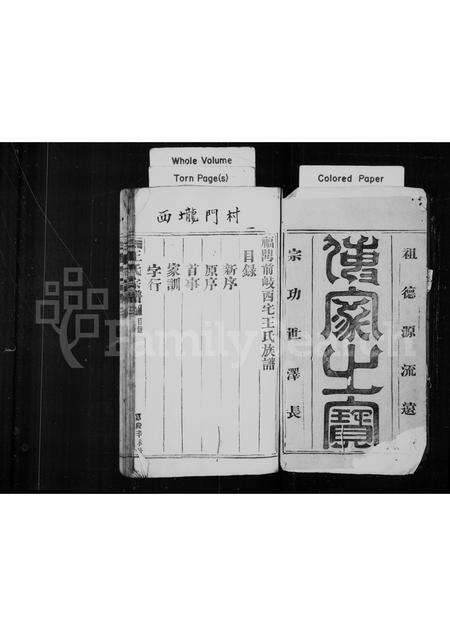 Whole Volume
Torn Page(s)
Colored Paper
祖德源流遠
傳家之寶
宗功世澤長
西壠門村
福閩前岐西宅王氏族譜
目錄
新序
原序
首事
家訓
字行
FamilySearch